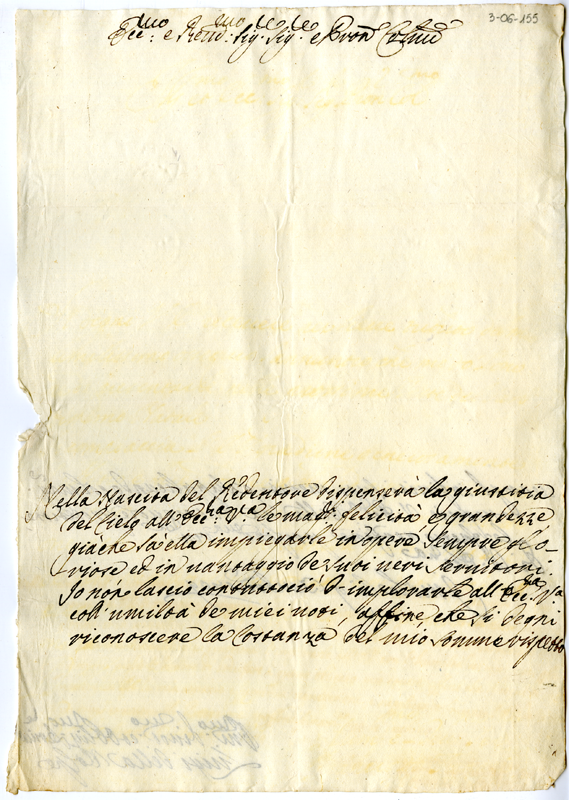 3-06-155
Ecc:mo e Rmo: Sig:re Sig:re e Pron Colmo
Nella Nascita del Redentore dispenserà la giustitia
del Cielo all'Ecc:za V:a le magi felicità e grandezze
giache sà ella impiegarle in opere sempre glo-
riose ed in vantaggio de suoi veri servitori.
Io non lascio contuttociò d'implorarle all'Ecc:za V:a
coll'umiltà de miei voti, affine che si degni
riconoscere la costanza del mio sommo rispetto